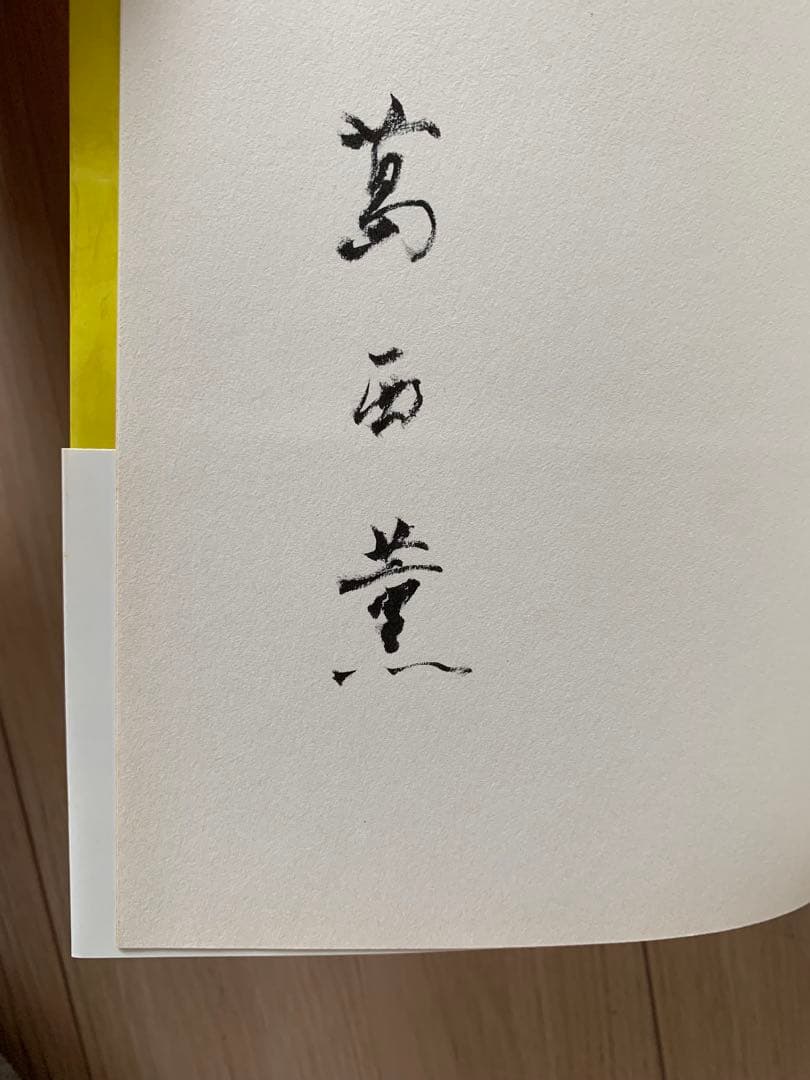 葛西薫